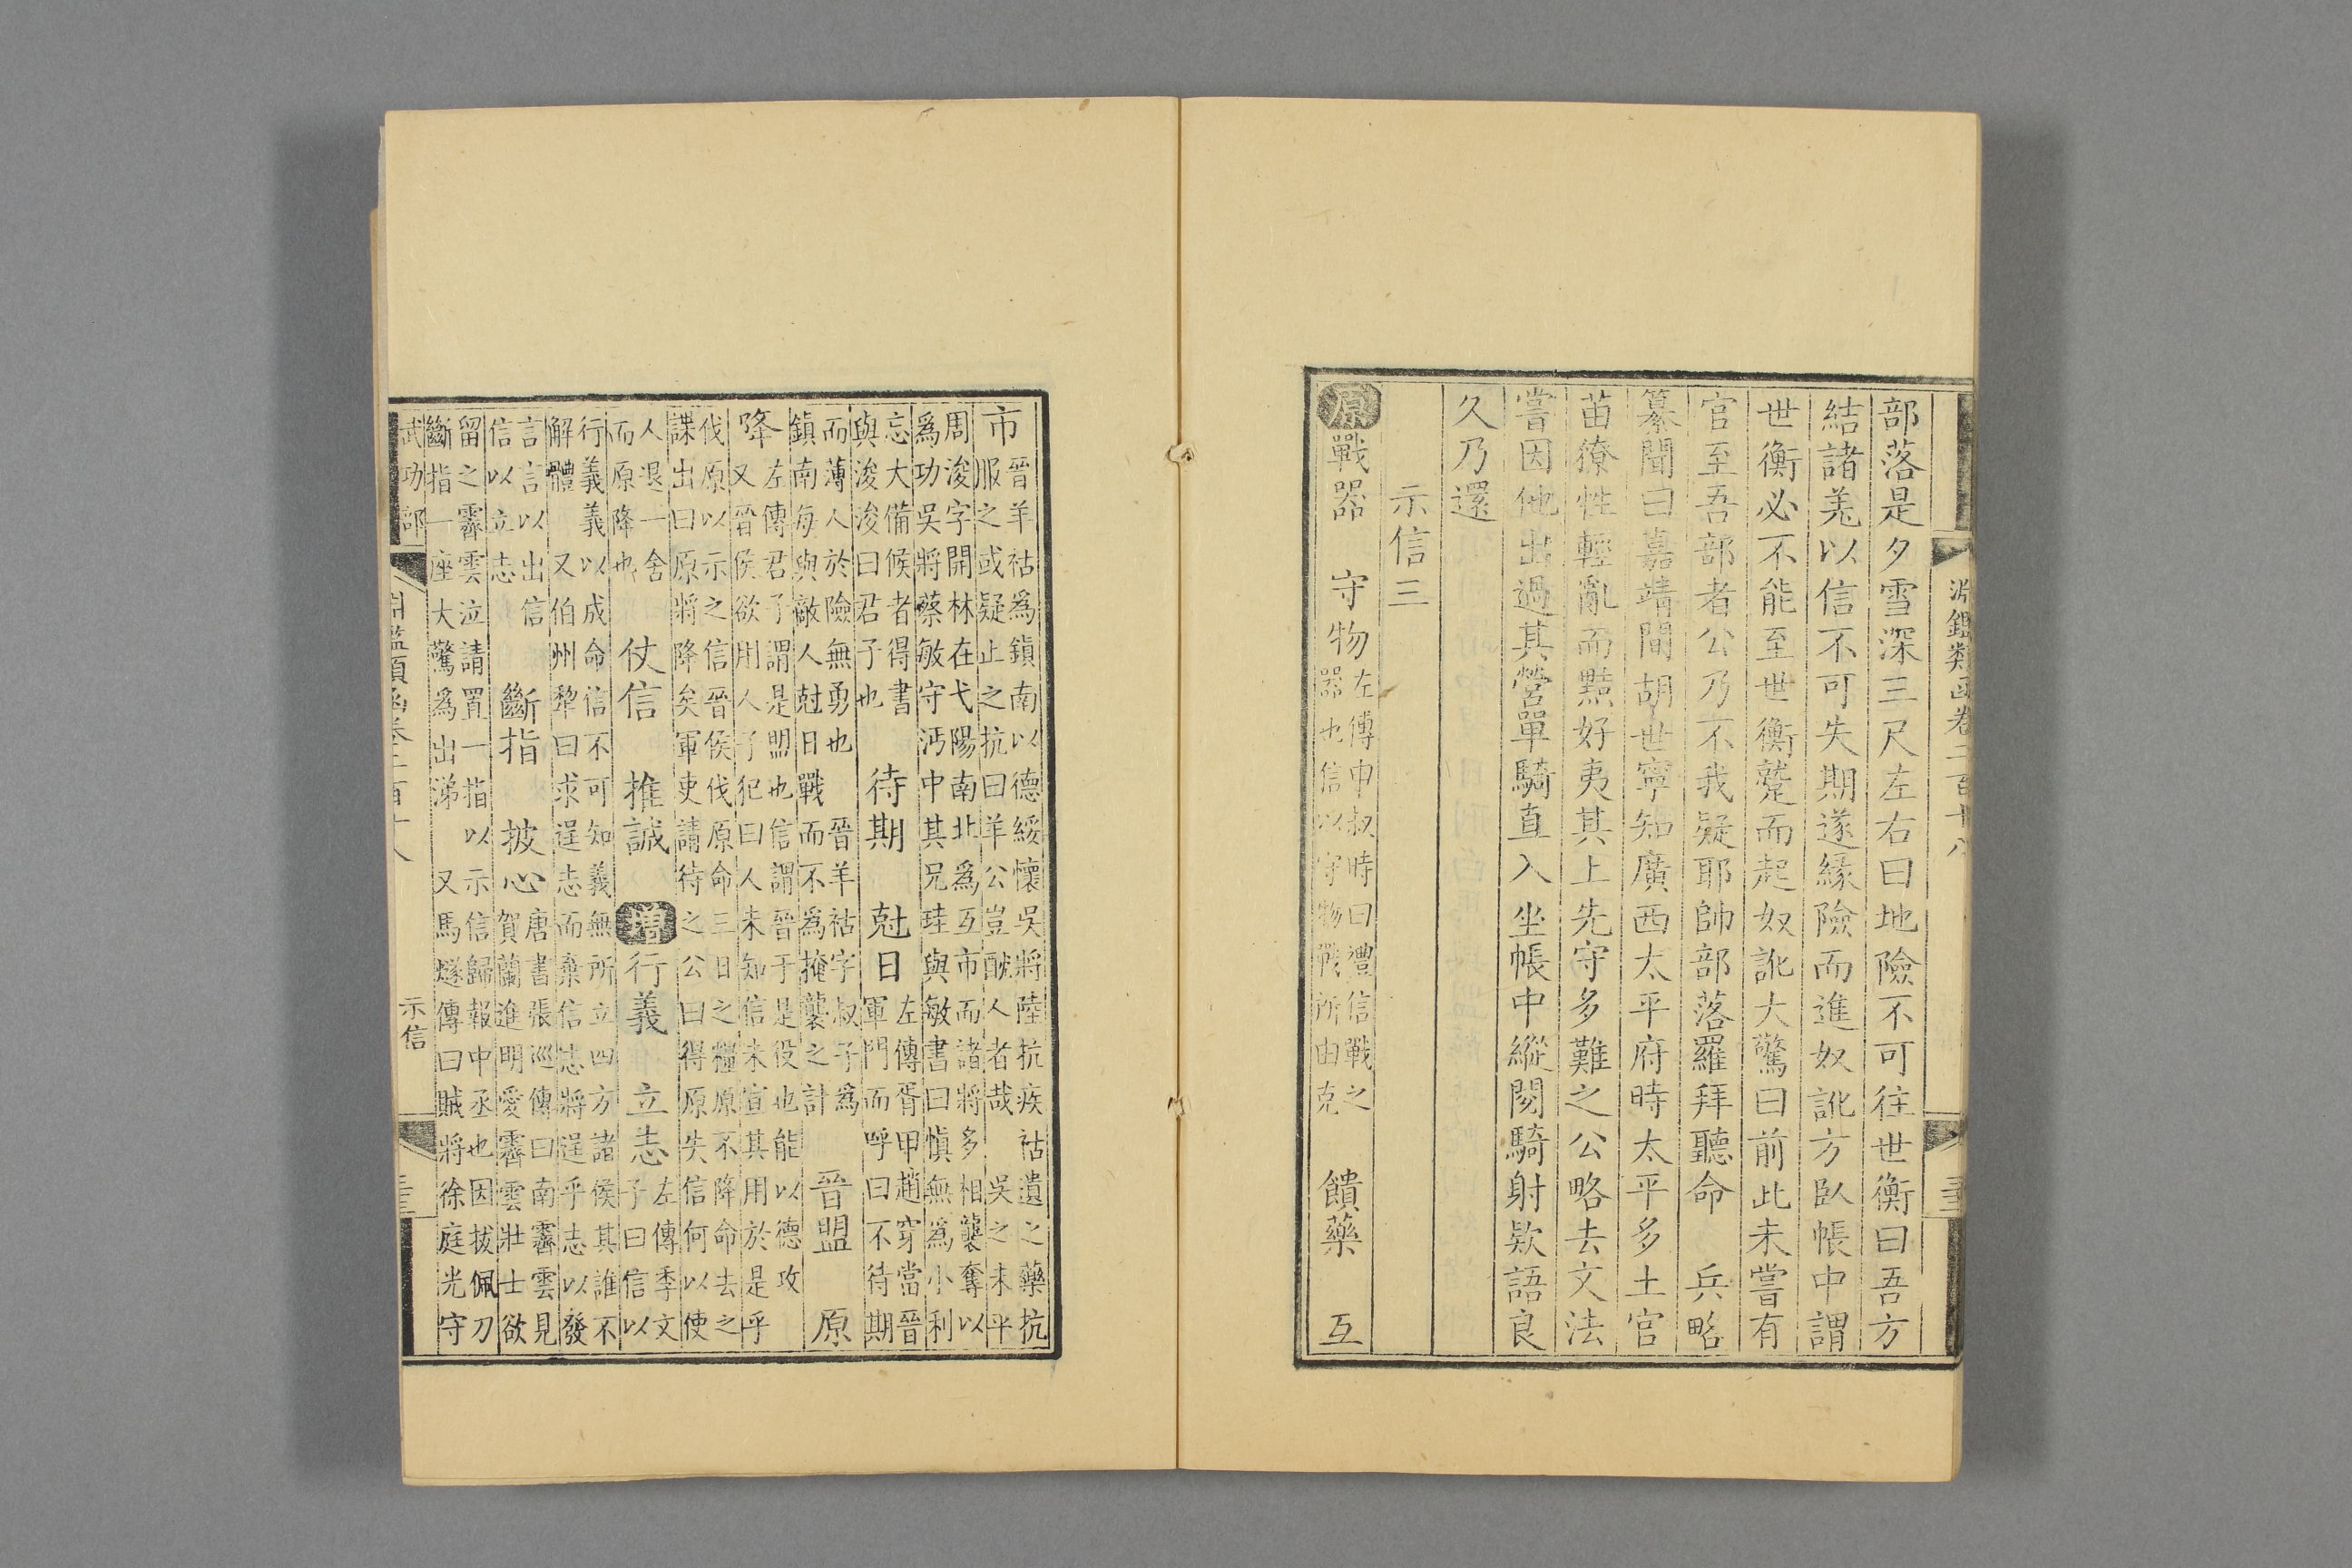 淵鑑類函卷二百十八
部落是夕雪深三尺左右曰地險不可往世衡曰吾方
結諸羗以信不可失期遂緣險而進奴訛方臥帳中謂
世衡必不能至世衡蹵而起奴訛大驚曰前此未嘗有
官至吾部者公乃不我疑耶帥部落羅拜聽命　兵略
纂聞曰嘉靖間胡世寧知廣西太平府時太平多土官
苗獠性輕亂而黠好夷其上先守多難之公略去文法
嘗因他出過其營單騎直入坐帳中縱閱騎射欵語良
久乃還
示信三
原戰器　守物左傳申叔時曰禮信戰之
器也信以守物戰所由克　饋藥　互
市晉羊祜爲鎮南以德綏懷吳將陸抗疾祜遺之藥抗
服之或疑止之抗曰羊公豈酖人者哉　吳之未平
周浚字開林在弋陽南北爲互市而諸將多相襲奪以
爲功吳將蔡敏守沔中其兄珪與敏書曰愼無爲小利
忘大備候者得書
與浚浚曰君子也　待期　尅日左傳胥甲趙穿當晉
軍門而呼曰不待期
而薄人於險無勇也　晉羊祜字叔子爲
鎮南每與敵人尅日戰而不爲掩襲之計　晉盟　原
降左傳君子謂是盟也信謂晉于是役也能以德攻
又晉侯欲用人子犯曰人未知信未宣其用於是乎
伐原以示之信晉侯伐原命三日之糧原不降命去之
諜出曰原將降矣軍吏請待之公曰得原失信何以使
人退一舍
而原降也　仗信　推誠　增行義　立志左傳季文
子曰信以
行義義以成命信不可知義無所立四方諸侯其誰不
解體　又伯州犂曰求逞志而棄信志將逞乎志以發
言言以出信
信以立志　斷指　披心唐書張巡傳曰南霽雲見
賀蘭進明愛霽雲壯士欲
留之霽雲泣請置一指以示信歸報中丞也因拔佩刀
斷指一座大驚爲出涕　又馬燧傳曰賊將徐庭光守
武功部
淵鑑類函卷二百十八
示信